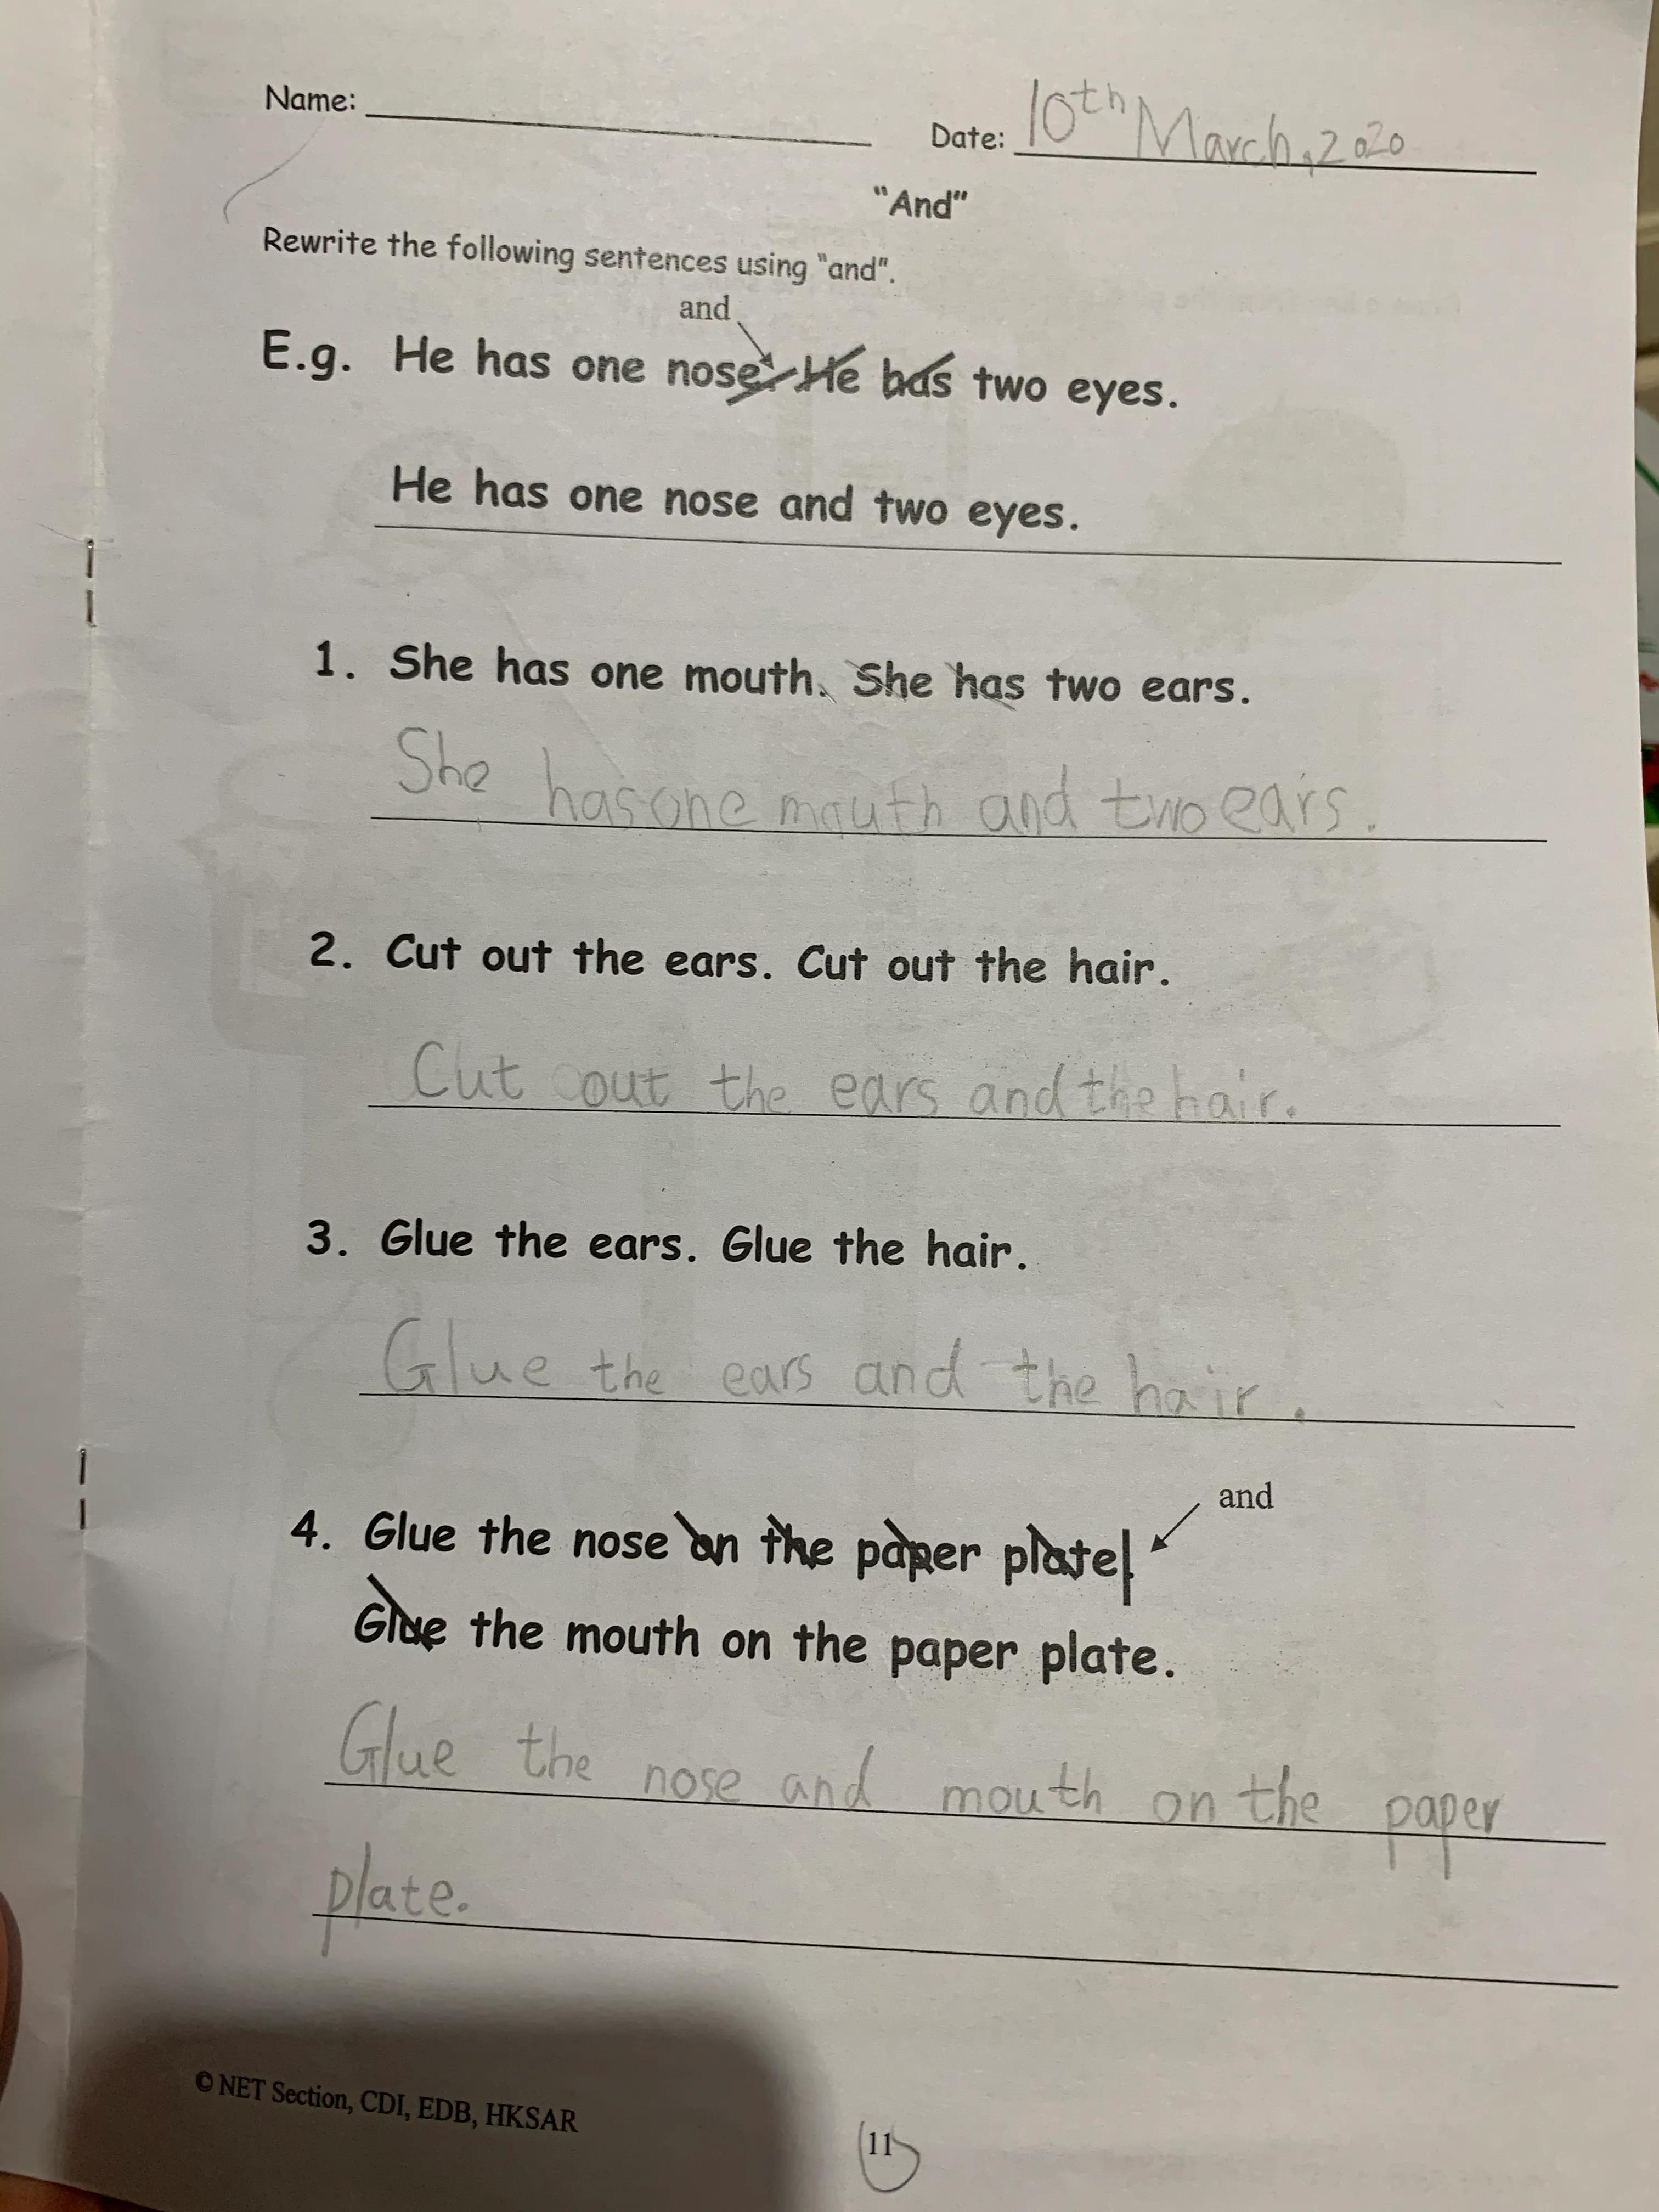 Name:
Date: 10th March, 2020
"And"
Rewrite the following sentences using "and".
and
E.g. He has one nose. He has two eyes.
He has one nose and two eyes.
1. She has one mouth. She has two ears.
She has one mouth and two ears.
2. Cut out the ears. Cut out the hair.
Cut out the ears and the hair.
3. Glue the ears. Glue the hair.
Glue the ears and the hair.
and
4. Glue the nose on the paper plate.
Glue the mouth on the paper plate.
Glue the nose and mouth on the paper
plate.
© NET Section, CDI, EDB, HKSAR
11